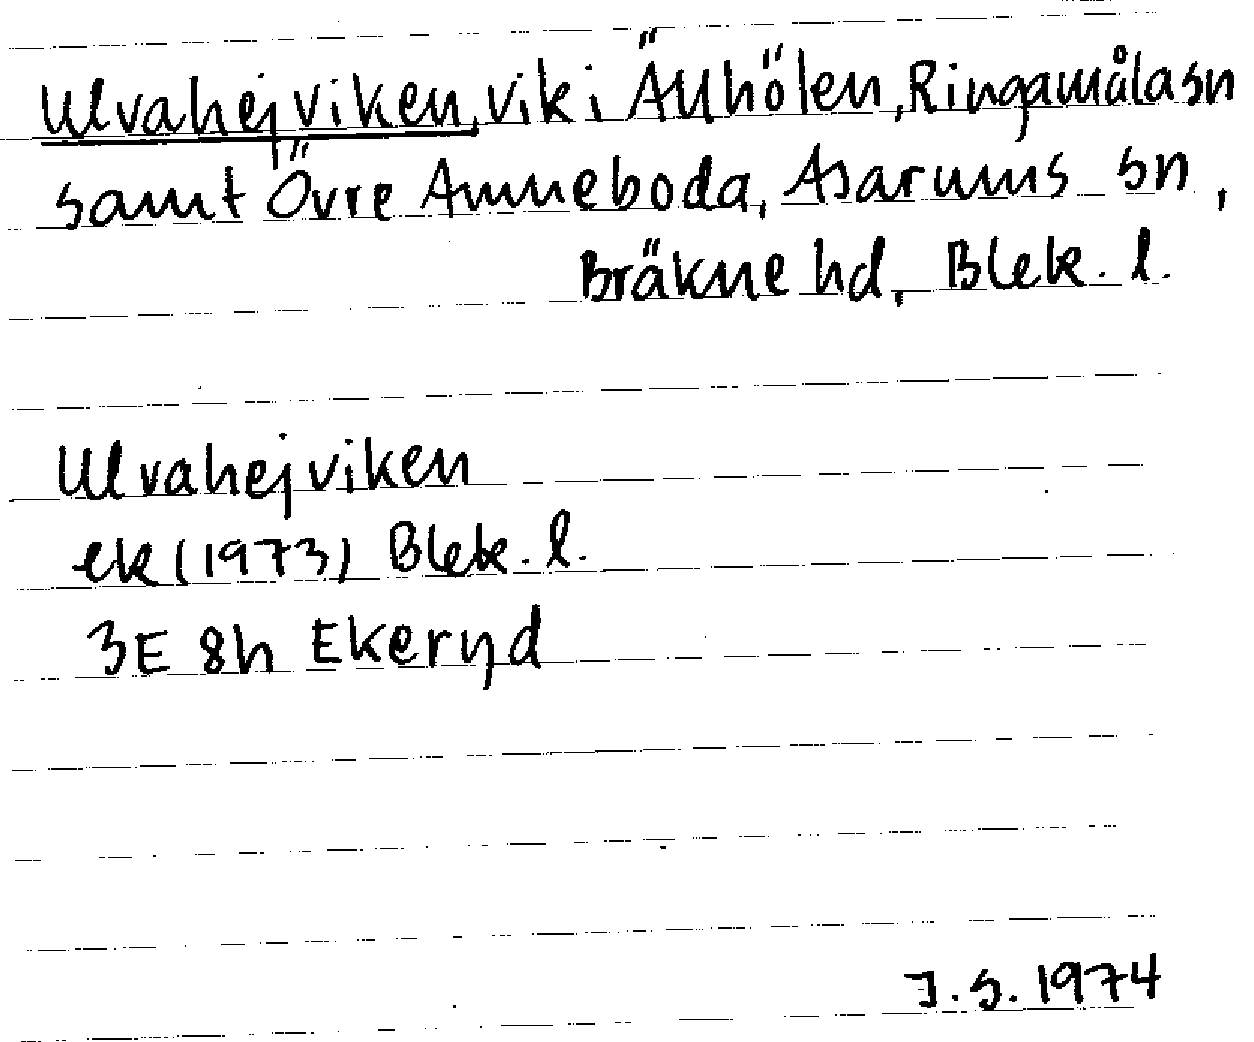 Ulvahejviken, vik i Ällhölen, Ringamåla sn
samt Övre Amneboda, Asarums sn,
Bräkne hd, Blek. l.
Ulvahejviken
ek (1973) Blek. l.
3E 8h Ekeryd
J.S. 1974